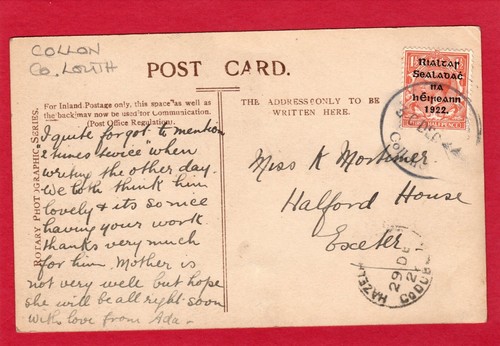 COLLON
Co. LOUTH
POST CARD.
For Inland Postage only, this space as well as
the back may now be used for Communication.
(Post Office Regulation).
THE ADDRESS ONLY TO BE
WRITTEN HERE.
ROTARY PHOTOGRAPHIC SERIES.
I quite forgot to mention
"2 times twice" when
writing the other day.
We both think him
lovely & its so nice
having your work
thanks very much
for him. Mother is
not very well but hope
she will be all right soon
With love from Ada.
Miss K Mortimer
Halford House
Exeter
Rialtas
Sealadac
na
hÉireann
1922.
HALFPENNY
DE 24
HAZELH
29 DE
24
Co DUBLIN